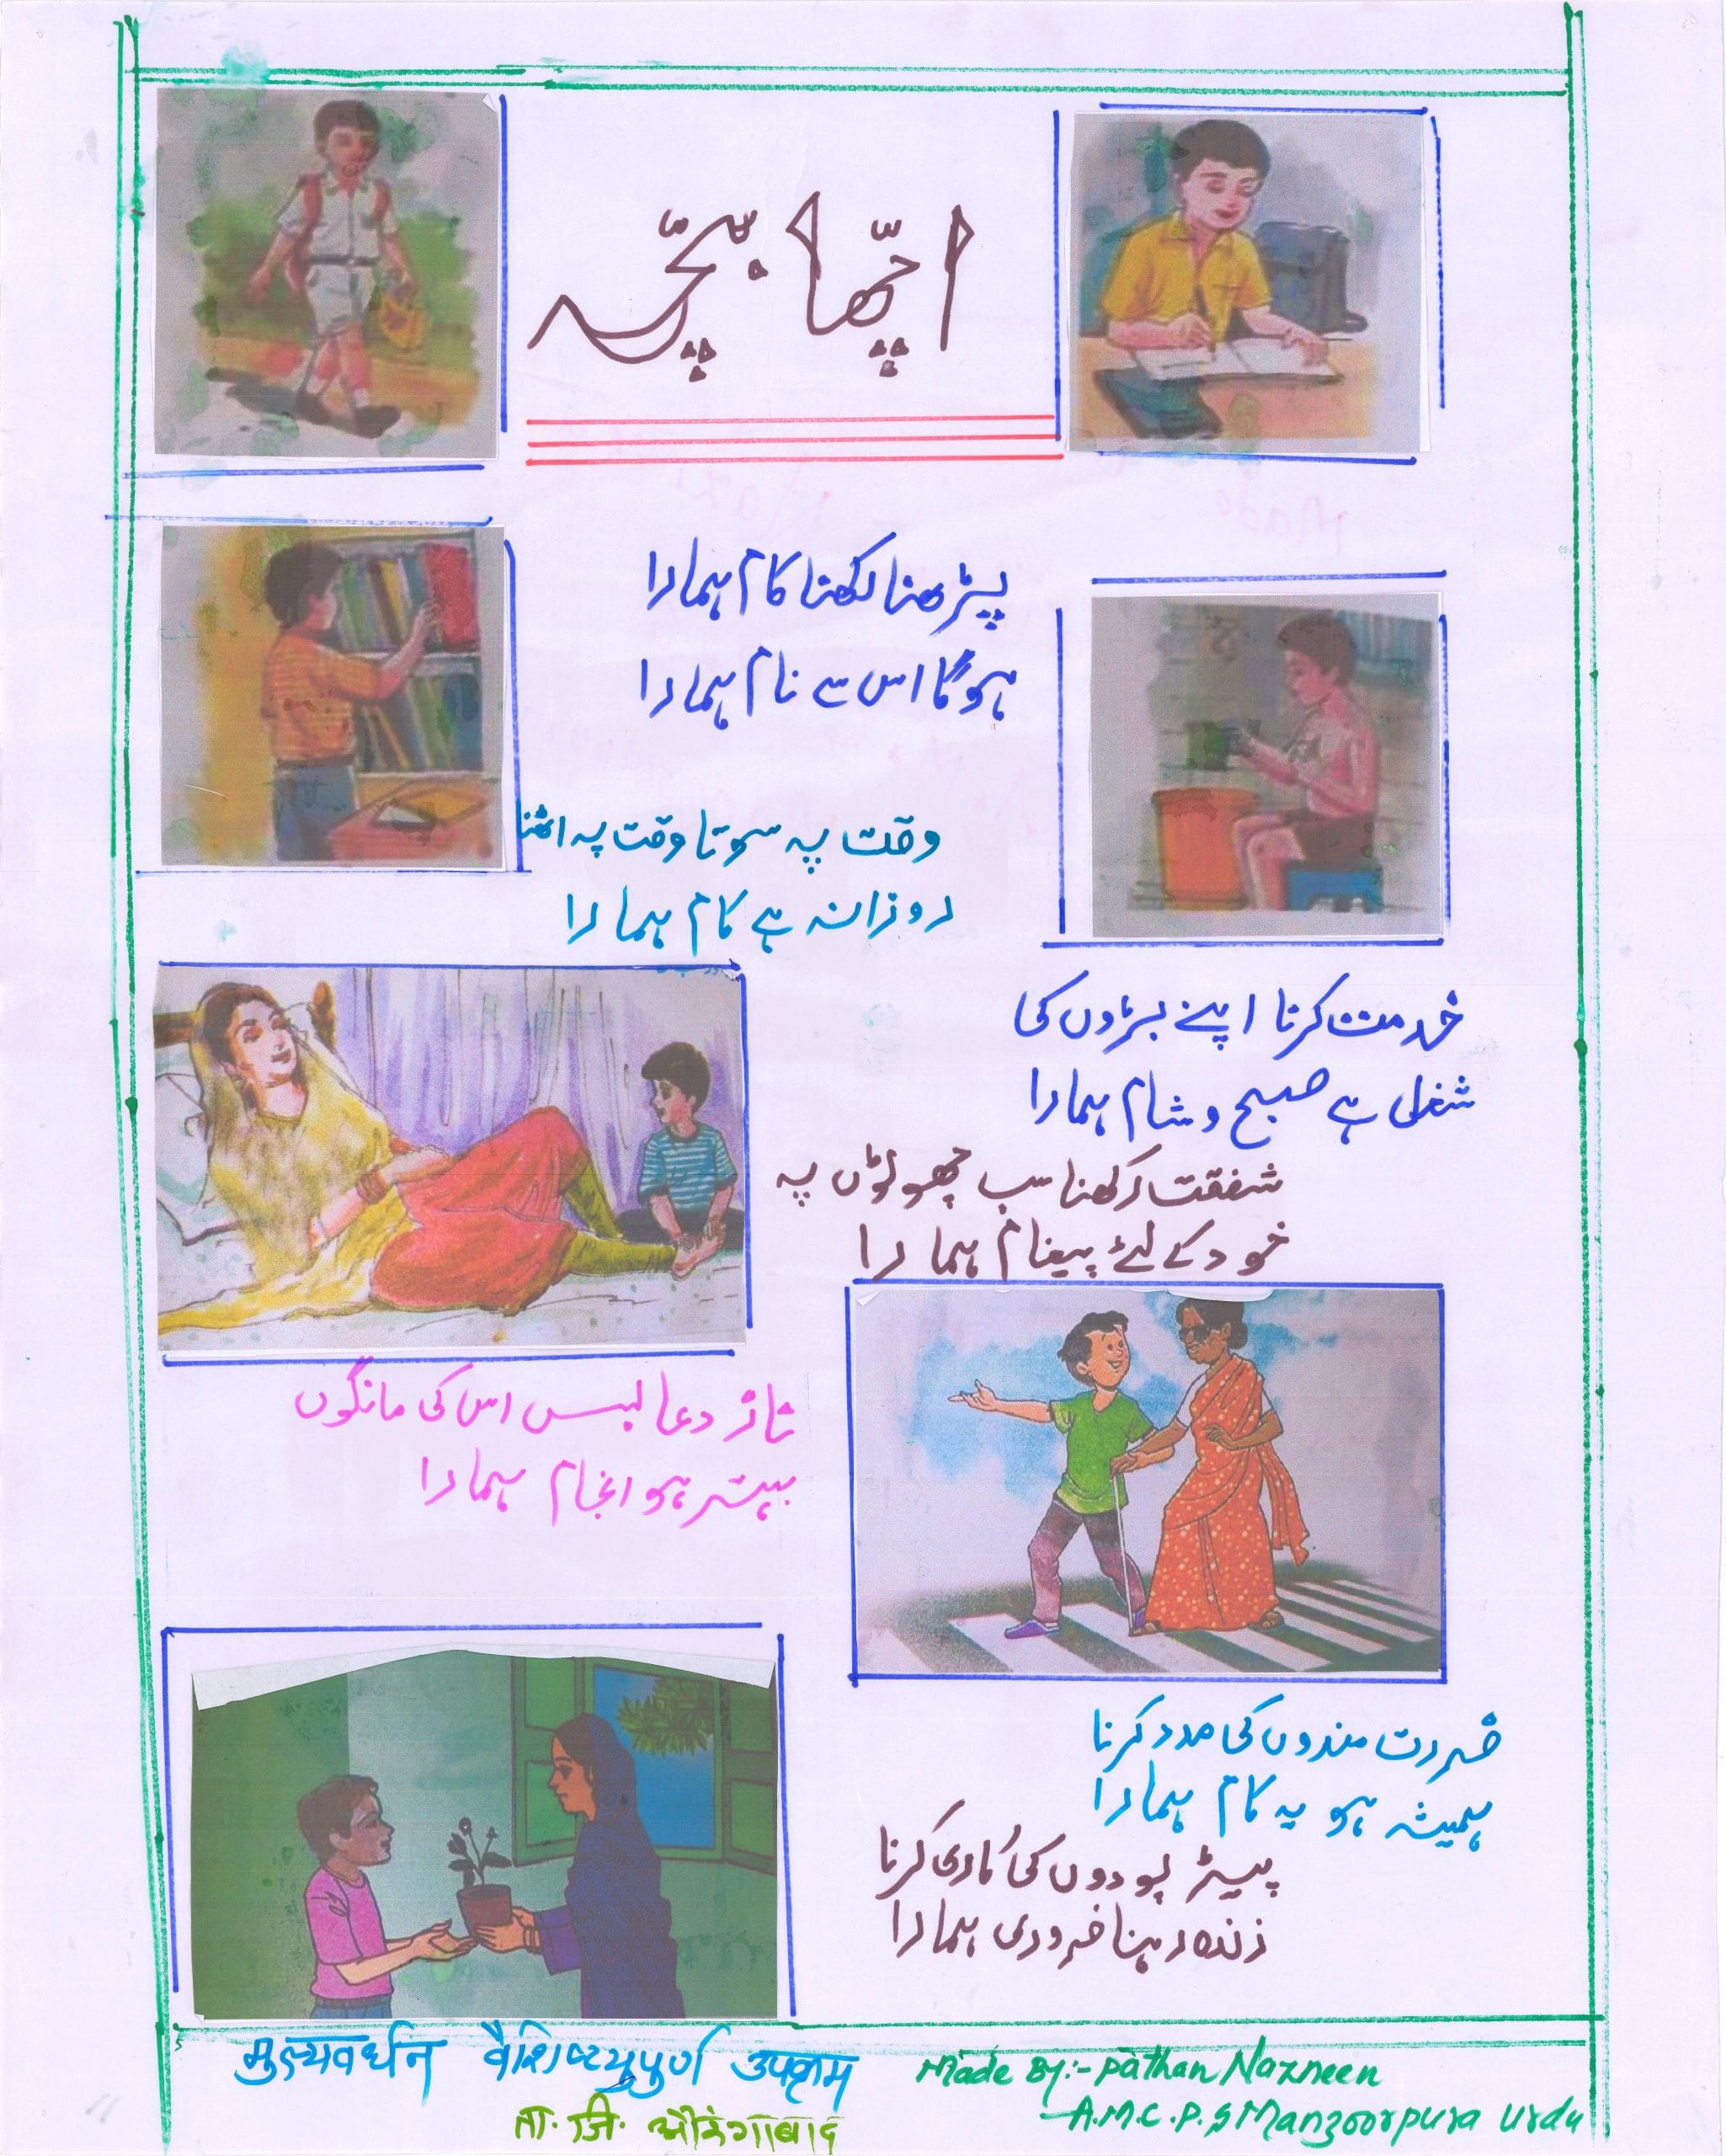 اچّھا بچّہ
پڑھنا لکھنا کام ہمارا
ہوگا اس سے نام ہمارا
وقت پہ سونا وقت پہ اٹھنا
روزانہ ہے کام ہمارا
خدمت کرنا اپنے بڑوں کی
شغل ہے صبح و شام ہمارا
شفقت رکھنا سب چھوٹوں پہ
خود کے لئے پیغام ہمارا
دعا بس اس کی مانگوں
بہتر ہو انجام ہمارا
ضرورت مندوں کی مدد کرنا
ہمیشہ ہو یہ کام ہمارا
پیڑ پودوں کی کرنا
زندہ رہنا ضروری ہمارا
मुल्यवर्धन वैशिष्ट्यपुर्ण उपक्रम
ता. जि. औरंगाबाद
Made By:- Pathan Nazneen
A.M.C.P.S Manzoorpura Urdu